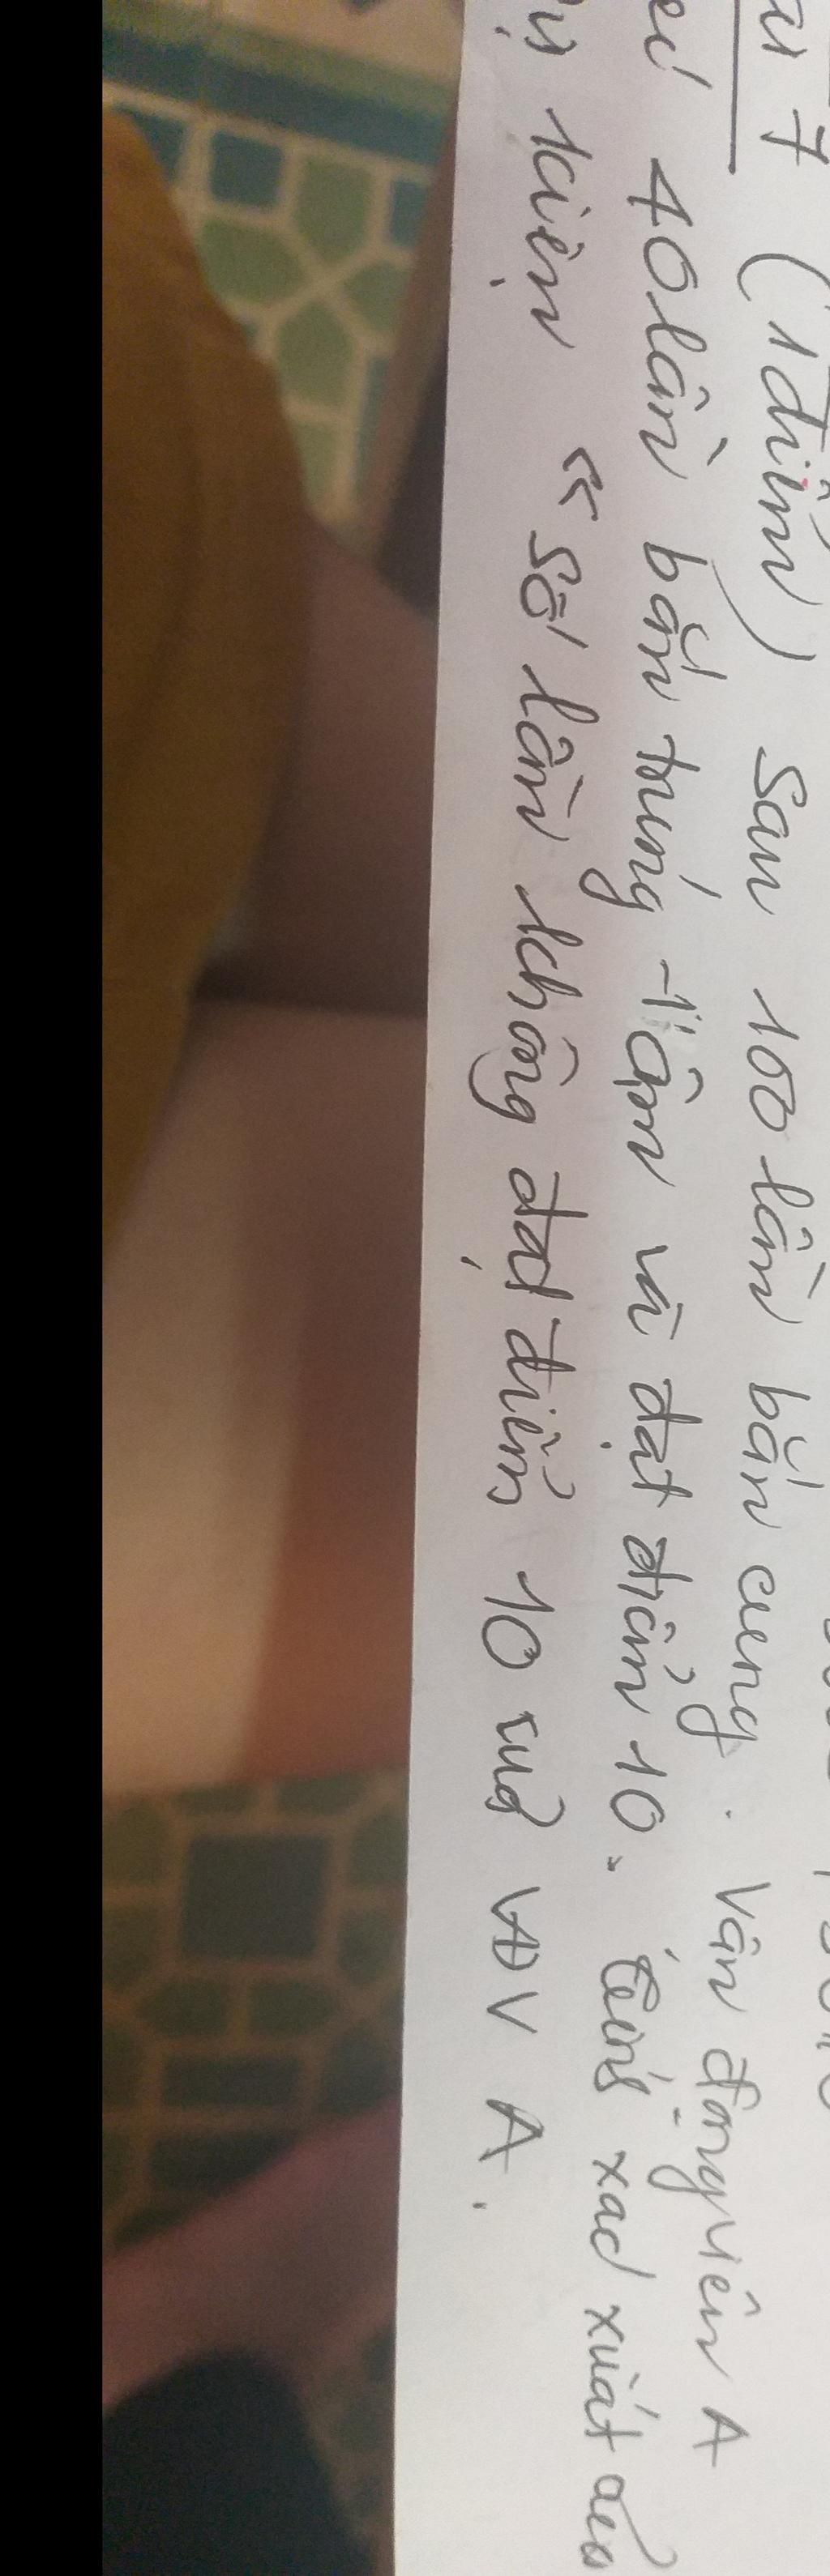 7 (1 điểm) Sau 100 lần bắn cung. Vận động viên A
40 lần bắn trúng tâm và đạt điểm 10. Tính xác xuất của
kiện "số lần không đạt điểm 10 của VĐV A.